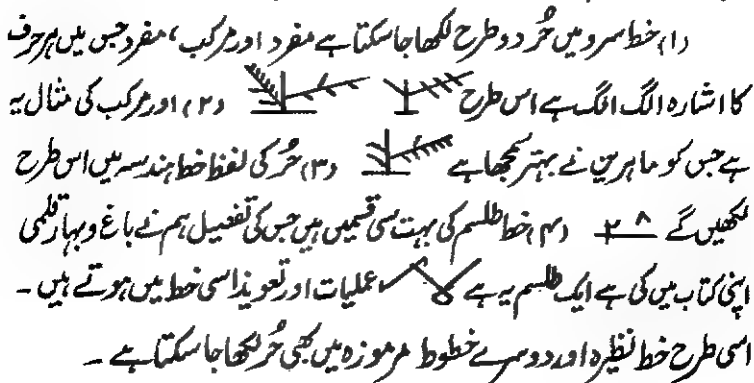 (۱) خط سرو میں حُر دو طرح لکھا جاسکتا ہے مفرد اور مرکب، مفرد جس میں ہر حرف
کا اشارہ الگ الگ ہے اس طرح (۲) اور مرکب کی مثال یہ
ہے جس کو ماہرین نے بہتر سمجھا ہے (۳) حُر کی لفظ خط ہندسہ میں اس طرح
لکھیں گے ۸ ۲ (۴) خط طلسم کی بہت سی قسمیں ہیں جس کی تفصیل ہم نے باغ و بہار قلمی
اپنی کتاب میں کی ہے ایک طلسم یہ ہے عملیات اور تعویذ اسی خط میں ہوتے ہیں ۔
اسی طرح خط نظیرہ اور دوسرے خطوط مرموزہ میں بھی حُر لکھا جاسکتا ہے ۔